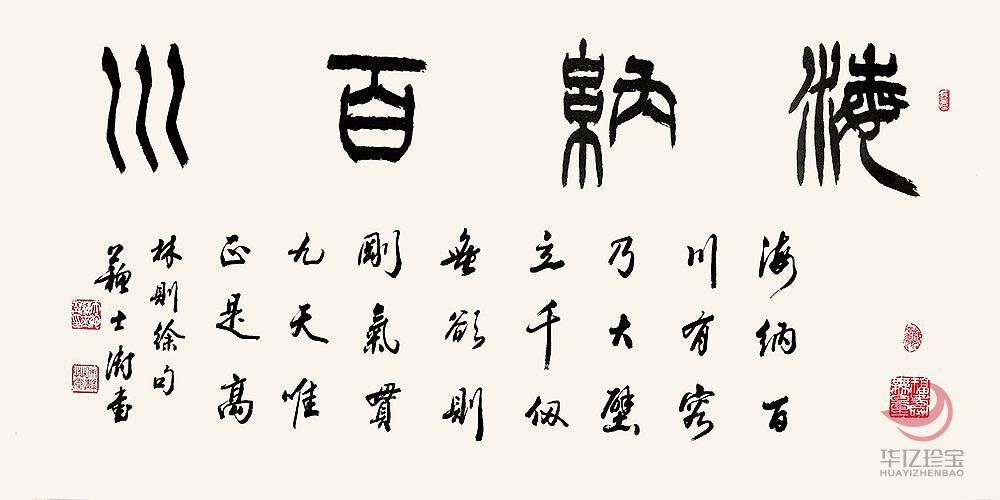 海納百川
海納百
川有容
乃大壁
立千仞
無欲則
剛氣貫
九天唯
正是高
林則徐句
蘇士澍書
华亿珍宝
HUAYIZHENBAO